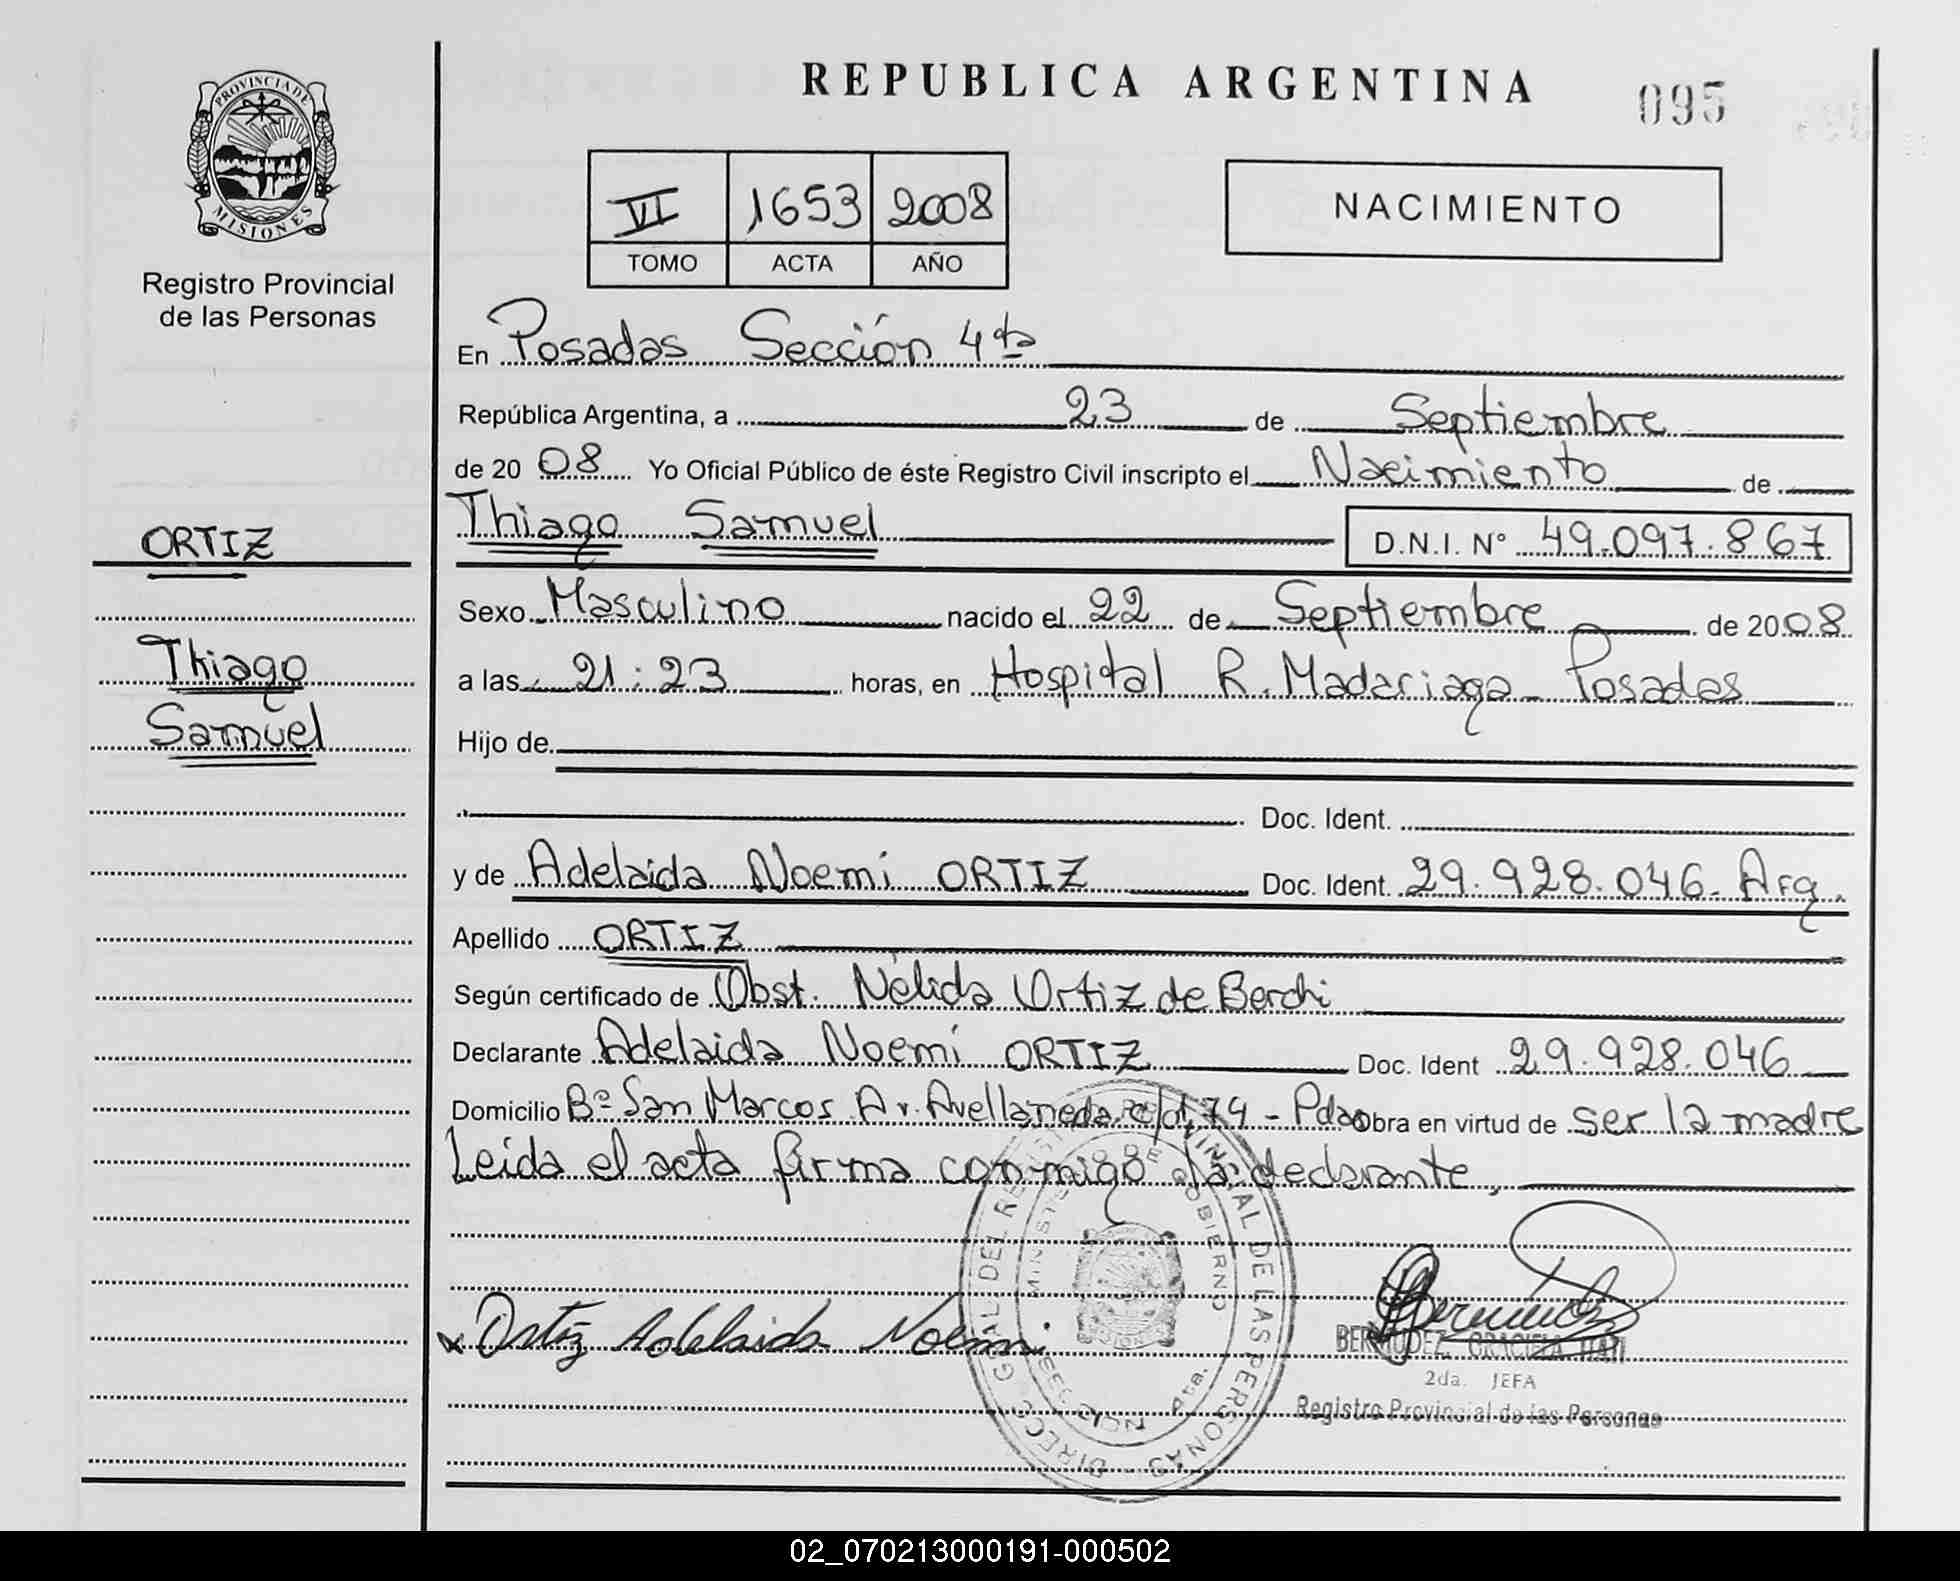 PROVINCIA DE
MISIONES
Registro Provincial
de las Personas
REPUBLICA ARGENTINA
095
VI 1653 2008
TOMO ACTA AÑO
NACIMIENTO
En Posadas Sección 4ta
República Argentina, a 23 de Septiembre
de 2008 Yo Oficial Público de éste Registro Civil inscripto el Nacimiento de
Thiago Samuel D.N.I. N° 49.097.867
ORTIZ
Thiago
Samuel
Sexo Masculino nacido el 22 de Septiembre de 2008
a las 21:23 horas, en Hospital R. Madariaga - Posadas
Hijo de
Doc. Ident.
y de Adelaida Noemi ORTIZ Doc. Ident. 29.928.046. Arg.
Apellido ORTIZ
Según certificado de Obst. Nélida Ortiz de Berchi
Declarante Adelaida Noemi ORTIZ Doc. Ident 29.928.046
Domicilio Bº San Marcos Av. Avellaneda 74 - Pdas Obra en virtud de ser la madre
Leida el acta firma conmigo la declarante,
Ortiz Adelaida Noemi
BERMUDEZ, GRACIELA ITATI
2da. JEFA
Registro Provincial de las Personas
DIRECC. GRAL DEL REGISTRO PROVINCIAL DE LAS PERSONAS
MINISTERIO DE GOBIERNO
MISIONES
02_070213000191-000502